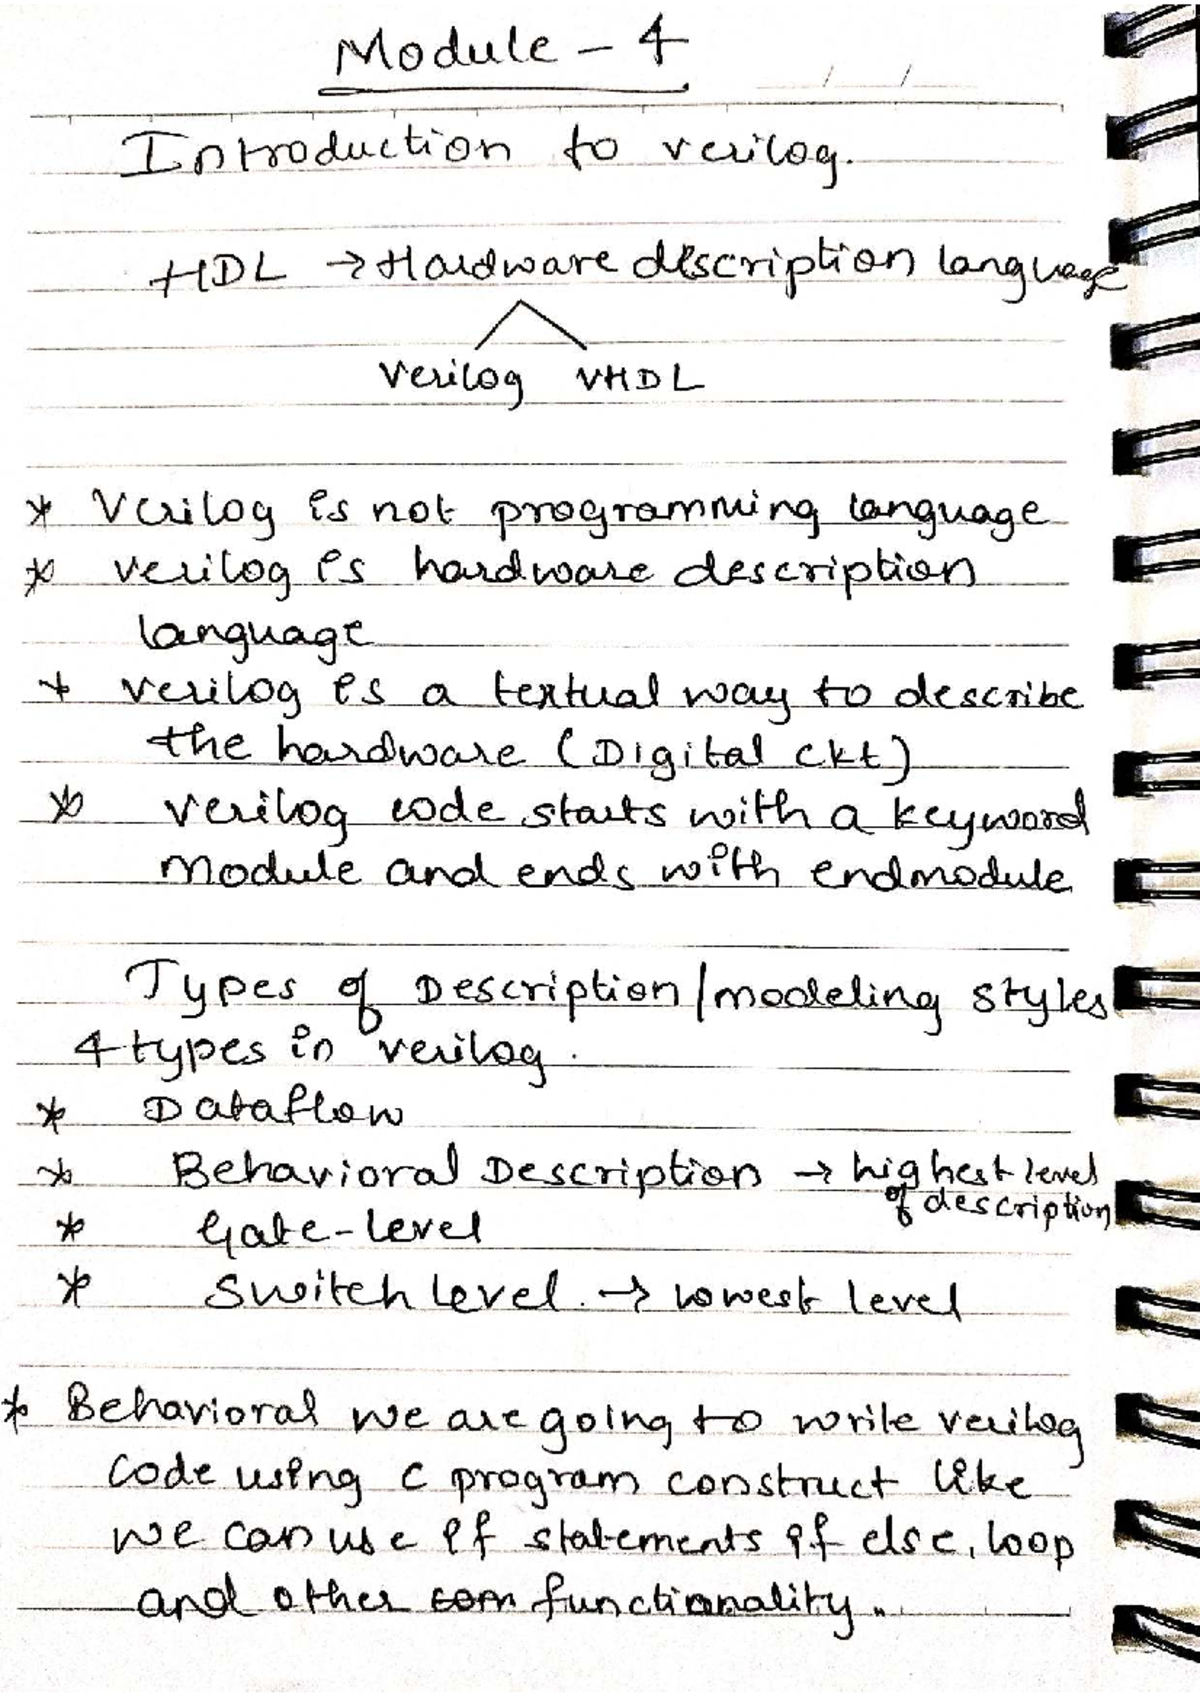 Module - 4
Introduction to verilog.
HDL → Hardware description language
Verilog VHDL
* Verilog is not programming language
* verilog is hardware description
language
* verilog is a textual way to describe
the hardware (Digital ckt)
* verilog code starts with a keyword
Module and ends with endmodule
Types of Description/modeling styles
4 types in verilog.
* Dataflow
* Behavioral Description → highest level
of description
* Gate-level
* Switch level. → lowest level
* Behavioral we are going to write verilog
code using c program construct like
we can use if statements if else, loop
and other functionality.